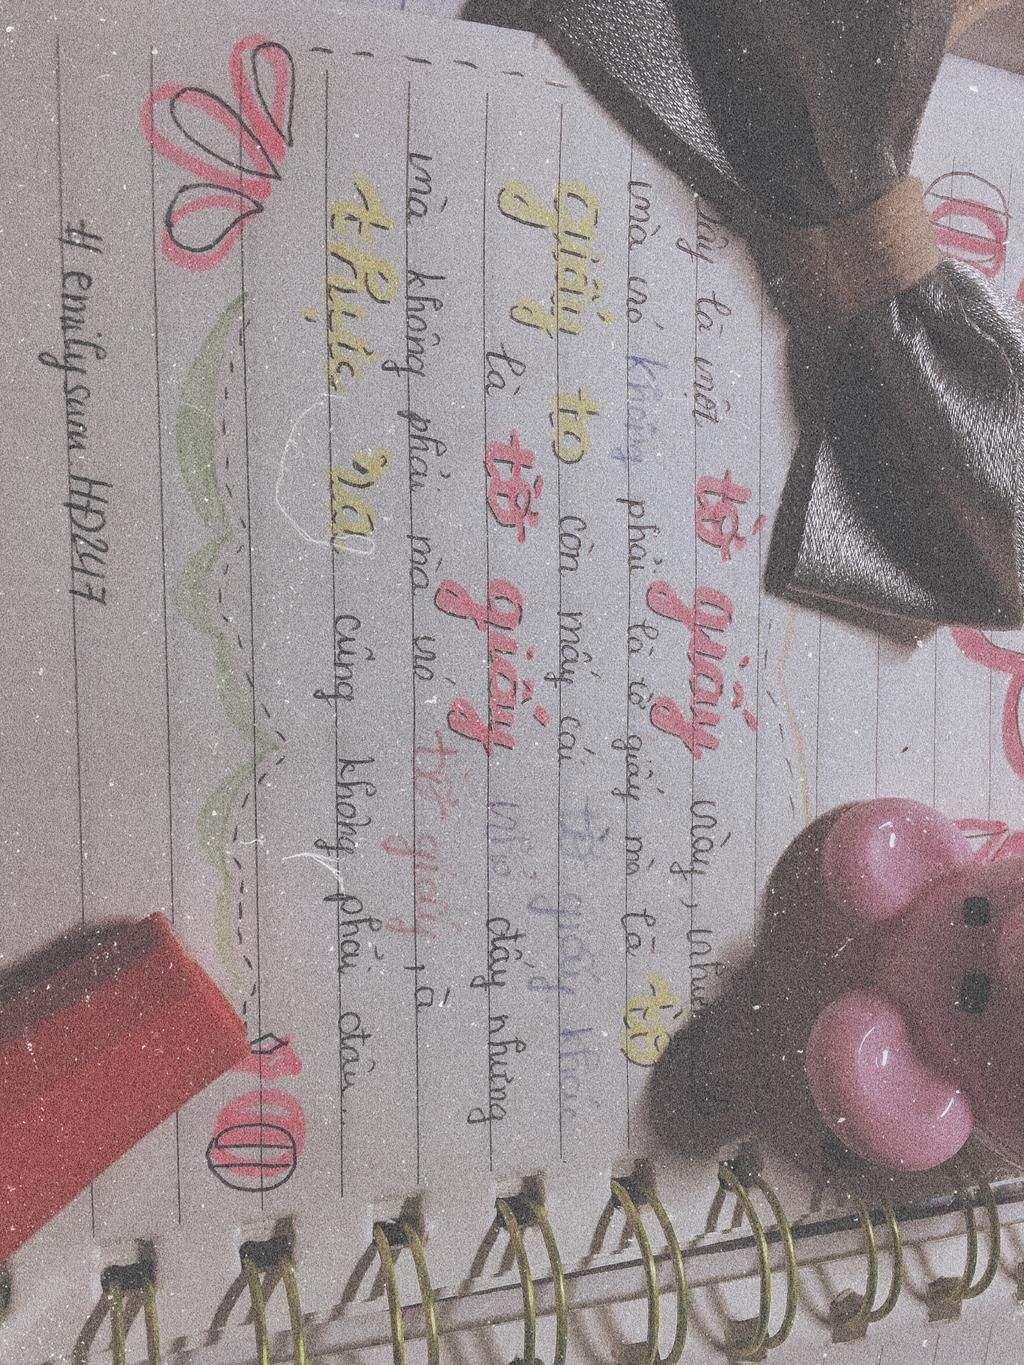 là một tờ giấy này,
mà nó không phải là tờ giấy mà là tờ
giấy to còn mấy cái tờ giấy khác
là tờ giấy nhỏ đấy nhưng
mà không phải mà nó tờ giấy, à
thực ra cũng không phải đâu.